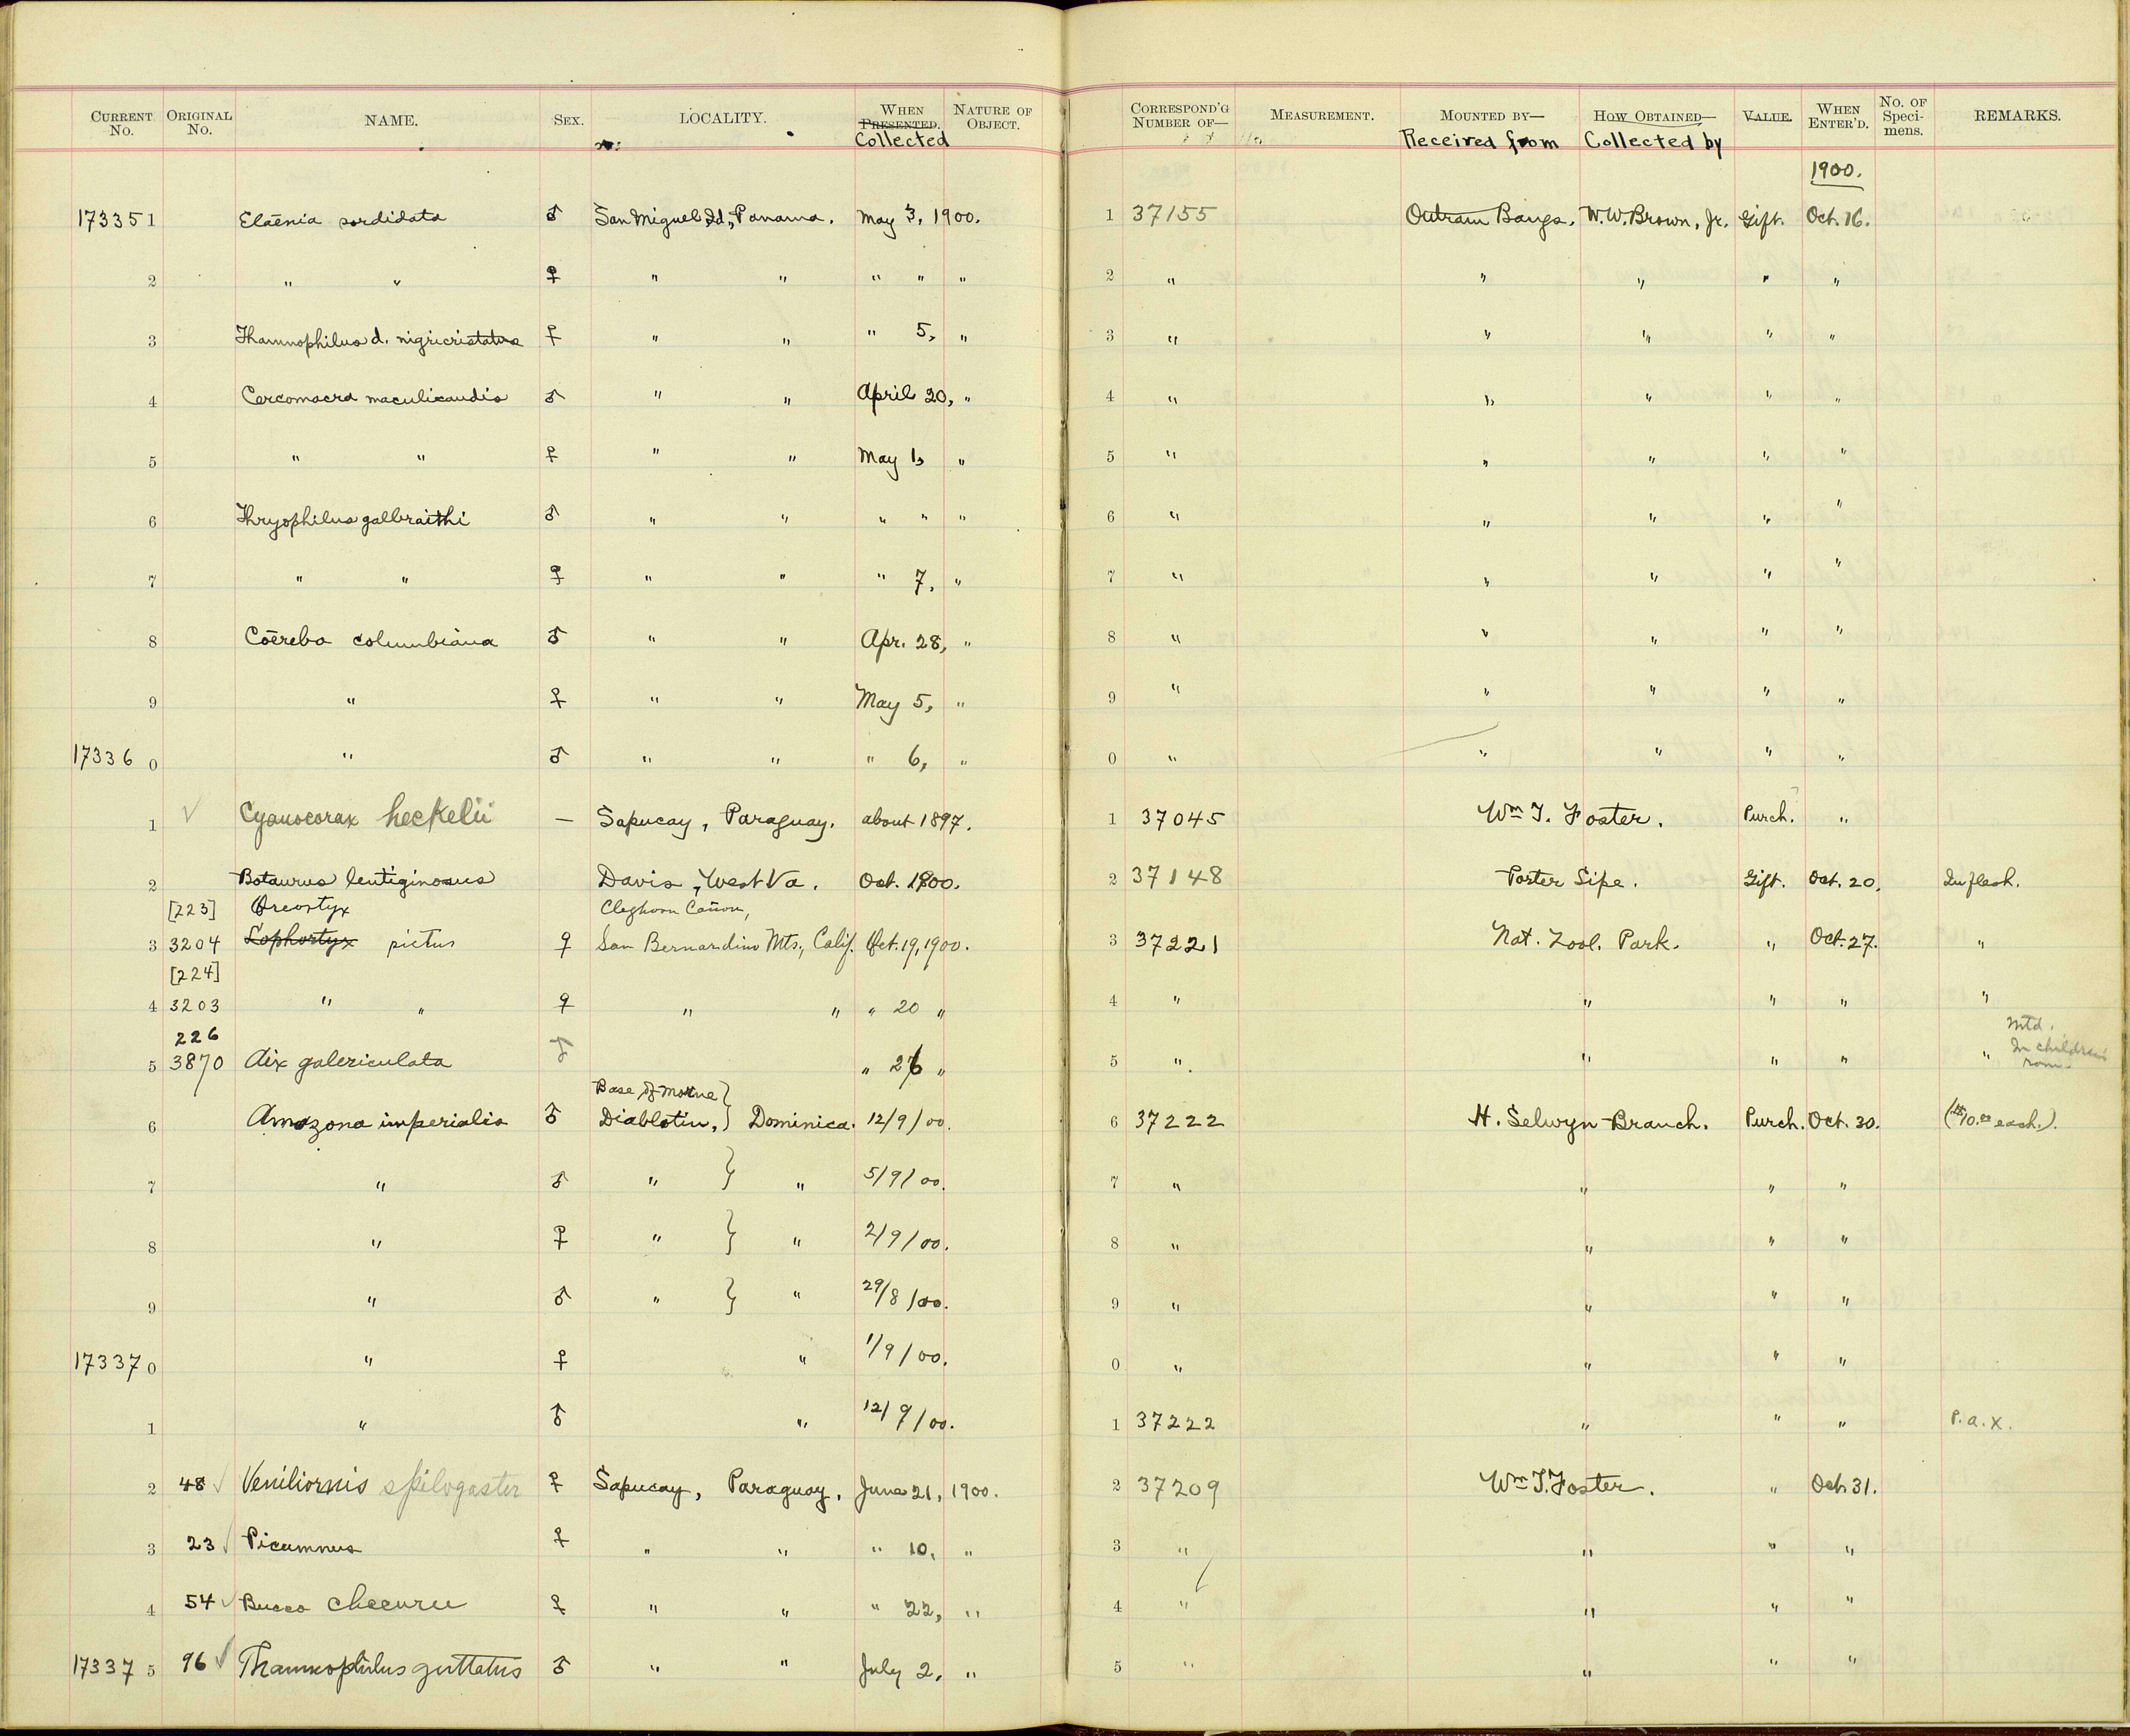 CURRENT No. ORIGINAL No. NAME. SEX. LOCALITY. WHEN PRESENTED. Collected NATURE OF OBJECT. CORRESPOND'G NUMBER OF— MEASUREMENT. MOUNTED BY— Received from HOW OBTAINED— Collected by VALUE. WHEN ENTER'D. No. OF Specimens. REMARKS.
1900.
173351 Elaënia sordidata ♂ San Miguel Id., Panama. May 3, 1900. 1 37155 Outram Bangs. W.W. Brown, Jr. Gift. Oct. 16.
2 " " ♀ " " " " " 2 " " " " "
3 Thamnophilus d. nigricristatus ♀ " " " 5, " 3 " " " " "
4 Cercomacra maculicaudis ♂ " " April 20, " 4 " " " " "
5 " " ♀ " " May 1, " 5 " " " " "
6 Thryophilus galbraithi ♂ " " " " " 6 " " " " "
7 " " ♀ " " " 7, " 7 " " " " "
8 Coëreba columbiana ♂ " " Apr. 28, " 8 " " " " "
9 " ♀ " " May 5, " 9 " " " " "
173360 " ♂ " " " 6, " 0 " " " " "
1 Cyanocorax heckelii — Sapucay, Paraguay. about 1897. 1 37045 Wm T. Foster. Purch. "
2 Botaurus lentiginosus Davis, West Va. Oct. 1900. 2 37148 Porter Sipe. Gift. Oct. 20. In flesh.
[223] Oreortyx Cleghorn Cañon,
3 3204 Lophortyx pictus ♀ San Bernardino Mts., Calif. Oct. 19, 1900. 3 37221 Nat. Zool. Park. " Oct. 27. "
[224]
4 3203 " " ♀ " " " 20 " 4 " " " " "
226 Mtd.
5 3870 Aix galericulata ♂ " 26 " 5 " " " " " In children's room
Base of Morne }
6 Amazona imperialis ♂ Diablotin, } Dominica. 12/9/00. 6 37222 H. Selwyn Branch. Purch. Oct. 30. ($10.00 each.).
7 " ♂ " } " 5/9/00. 7 " " " "
8 " ♀ " } " 2/9/00. 8 " " " "
9 " ♂ " } " 29/8/00. 9 " " " "
173370 " ♀ " 1/9/00. 0 " " " "
1 " ♂ " 12/9/00. 1 37222 " " " P.a.x.
2 48 ✓ Veniliornis spilogaster ♀ Sapucay, Paraguay, June 21, 1900. 2 37209 Wm T. Foster. " Oct. 31.
3 23 ✓ Picumnus ♀ " " " 10, " 3 " " " "
4 54 ✓ Bucco chacuru ♀ " " " 22, " 4 " " " "
173375 96 ✓ Thamnophilus guttatus ♂ " " July 2, " 5 " " " "